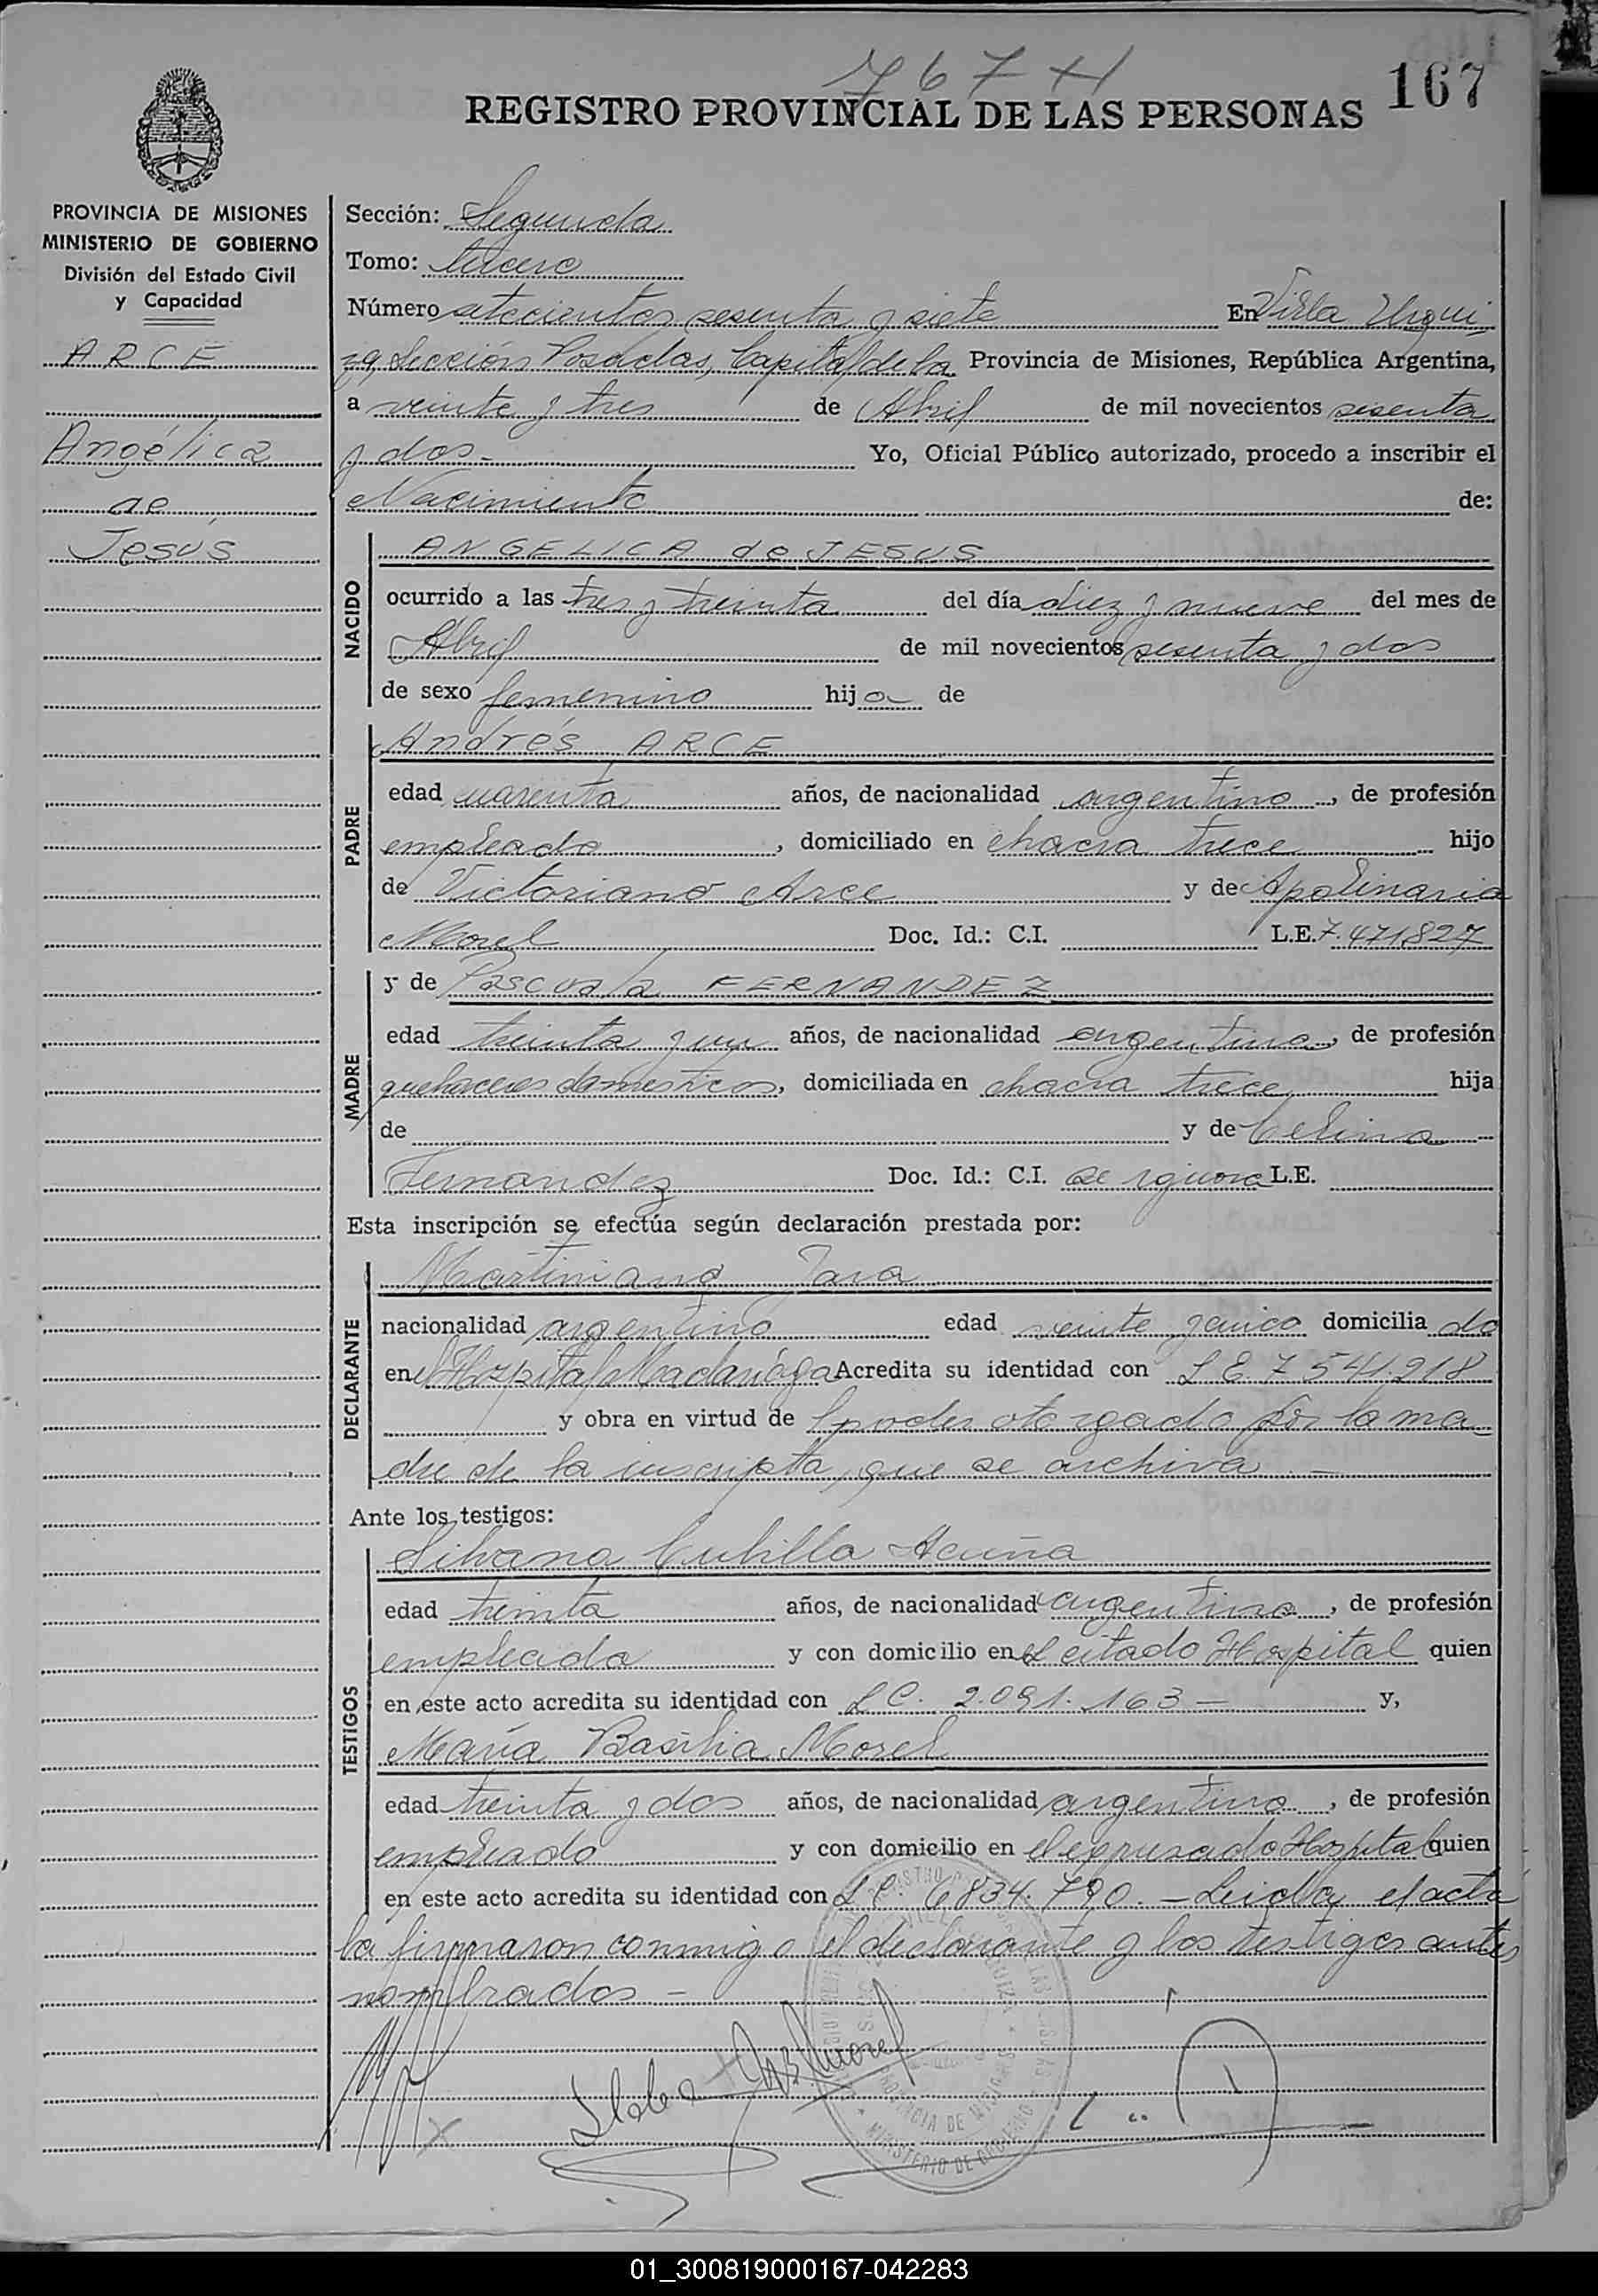 767 H
167
REGISTRO PROVINCIAL DE LAS PERSONAS
PROVINCIA DE MISIONES
MINISTERIO DE GOBIERNO
División del Estado Civil
y Capacidad
ARCE
Angélica
de
Jesús
Sección: Segunda
Tomo: tercero
Número setecientos sesenta y siete En Villa Urqui
za, Sección Posadas, Capital de la Provincia de Misiones, República Argentina,
a veinte y tres de Abril de mil novecientos sesenta
y dos - Yo, Oficial Público autorizado, procedo a inscribir el
Nacimiento de:
NACIDO
ANGELICA de JESUS
ocurrido a las tres y treinta del día diez y nueve del mes de
Abril de mil novecientos sesenta y dos
de sexo femenino hija de
PADRE
Andrés ARCE
edad cuarenta años, de nacionalidad argentino, de profesión
empleado, domiciliado en chacra trece hijo
de Victoriano Arce y de Apolinaria
Morel Doc. Id.: C.I. L.E. 7.471.827
MADRE
y de Pascuala FERNANDEZ
edad treinta y un años, de nacionalidad argentina, de profesión
quehaceres domesticos, domiciliada en chacra trece hija
de y de Celina
Fernandez Doc. Id.: C.I. se ignora L.E.
Esta inscripción se efectúa según declaración prestada por:
DECLARANTE
Martiniano Jara
nacionalidad argentino edad veinte y cinco domiciliado
en el Hospital Madariaga Acredita su identidad con L E. 7 541.918
y obra en virtud de poder otorgado por la ma
dre de la inscripta, que se archiva. -
Ante los testigos:
TESTIGOS
Silvana Cubilla Acuña
edad treinta años, de nacionalidad argentina, de profesión
empleada y con domicilio en el citado Hospital quien
en este acto acredita su identidad con L C. 2.091.163 - y,
María Basilia Morel
edad treinta y dos años, de nacionalidad argentina, de profesión
empleada y con domicilio en el expresado Hospital quien
en este acto acredita su identidad con L C. 6834.790. - Leida el acta
la firmaron conmigo el declarante y los testigos antes
nombrados -
PROVINCIA DE MISIONES
MINISTERIO DE GOBIERNO
01_300819000167-042283